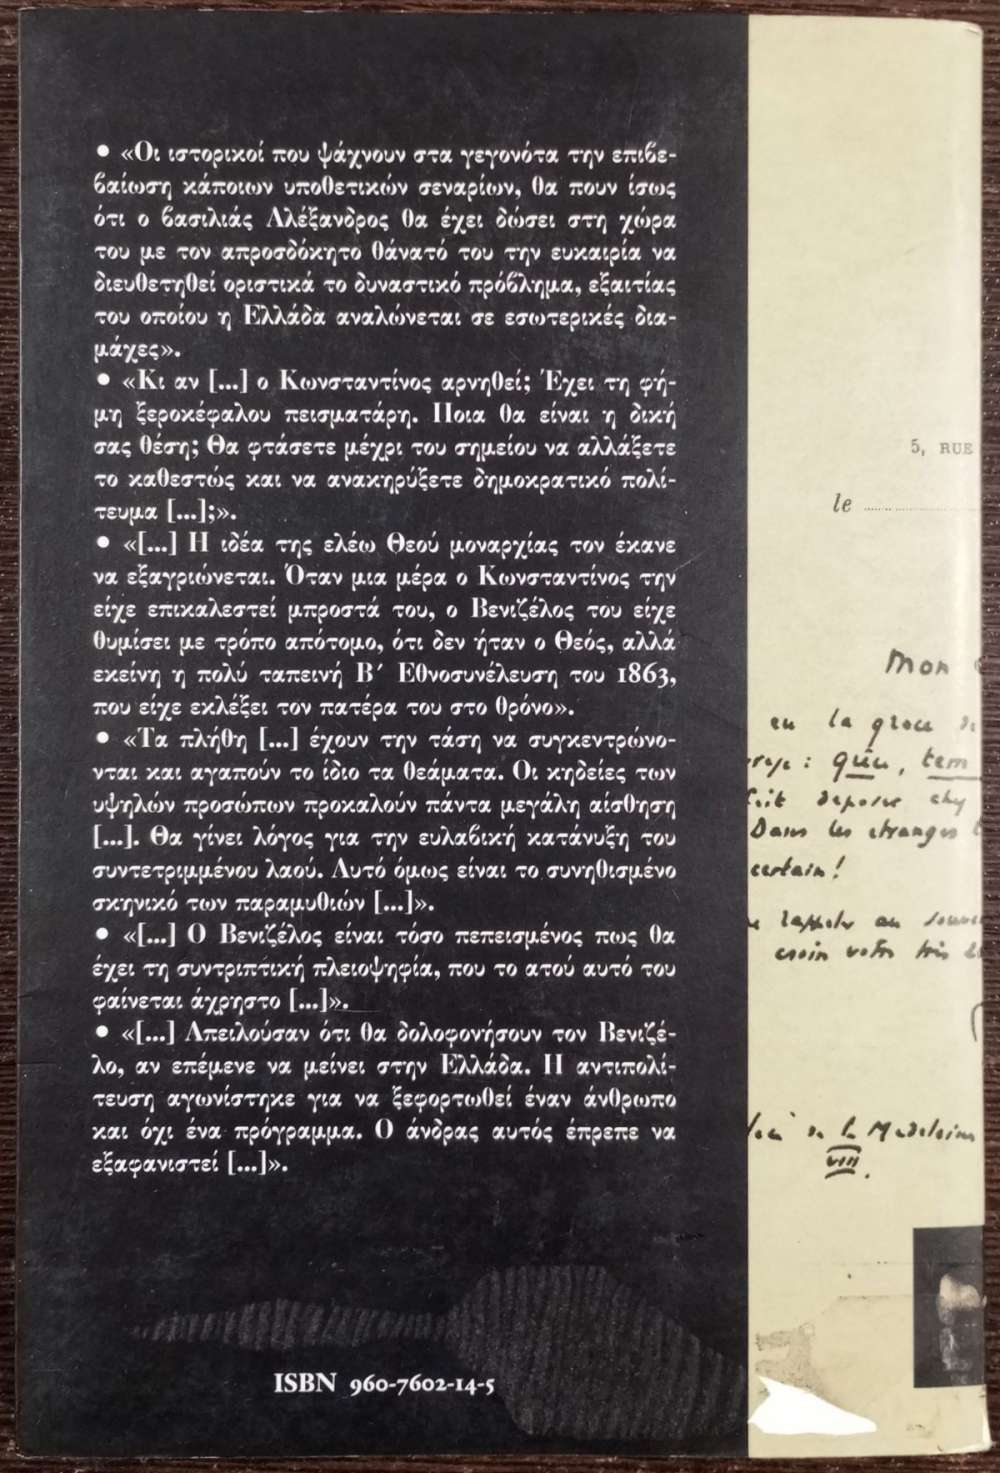 • «Οι ιστορικοί που ψάχνουν στα γεγονότα την επιβε-
βαίωση κάποιων υποθετικών σεναρίων, θα πουν ίσως
ότι ο βασιλιάς Αλέξανδρος θα έχει δώσει στη χώρα
του με τον απροσδόκητο θάνατό του την ευκαιρία να
διευθετηθεί οριστικά το δυναστικό πρόβλημα, εξαιτίας
του οποίου η Ελλάδα αναλώνεται σε εσωτερικές δια-
μάχες».
• «Κι αν [...] ο Κωνσταντίνος αρνηθεί; Έχει τη φή-
μη ξεροκέφαλου πεισματάρη. Ποια θα είναι η δική
σας θέση; Θα φτάσετε μέχρι του σημείου να αλλάξετε
το καθεστώς και να ανακηρύξετε δημοκρατικό πολί-
τευμα [...];».
• «[...] Η ιδέα της ελέω Θεού μοναρχίας τον έκανε
να εξαγριώνεται. Όταν μια μέρα ο Κωνσταντίνος την
είχε επικαλεστεί μπροστά του, ο Βενιζέλος του είχε
θυμίσει με τρόπο απότομο, ότι δεν ήταν ο Θεός, αλλά
εκείνη η πολύ ταπεινή Β΄ Εθνοσυνέλευση του 1863,
που είχε εκλέξει τον πατέρα του στο θρόνο».
• «Τα πλήθη [...] έχουν την τάση να συγκεντρώνο-
νται και αγαπούν το ίδιο τα θεάματα. Οι κηδείες των
υψηλών προσώπων προκαλούν πάντα μεγάλη αίσθηση
[...]. Θα γίνει λόγος για την ευλαβική κατάνυξη του
συντετριμμένου λαού. Αυτό όμως είναι το συνηθισμένο
σκηνικό των παραμυθιών [...]».
• «[...] Ο Βενιζέλος είναι τόσο πεπεισμένος πως θα
έχει τη συντριπτική πλειοψηφία, που το ατού αυτό του
φαίνεται άχρηστο [...]».
• «[...] Απειλούσαν ότι θα δολοφονήσουν τον Βενιζέ-
λο, αν επέμενε να μείνει στην Ελλάδα. Η αντιπολί-
τευση αγωνίστηκε για να ξεφορτωθεί έναν άνθρωπο
και όχι ένα πρόγραμμα. Ο άνδρας αυτός έπρεπε να
εξαφανιστεί [...]».
ISBN 960-7602-14-5
5, RUE
le
Mon
la
Dans les
certain!
au
de la Madeleine
VIII.